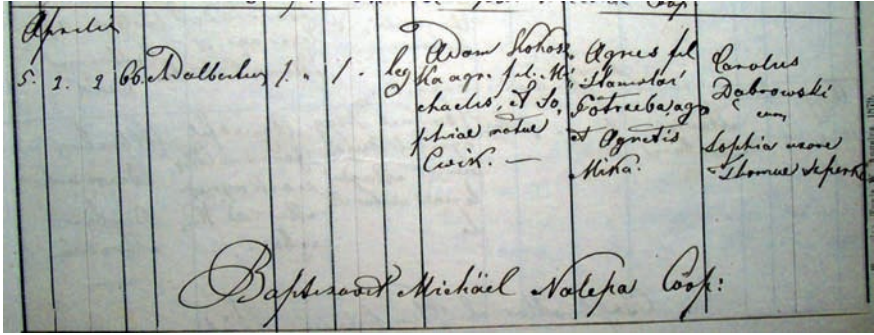 Aprilis
5. 2. 2 66. Adalbertus 1. „ 1. leg
Adam Kokosz
ka agr. fil. Mi
chaelis, et So
phiae natae
Cwik. —
Agnes fil
Stanislai
Potrzeba, agr
et Agnetis
Mika.
Carolus
Dąbrowski
cum
Sophia uxore
Thomae
Baptisavit Michäel Nalepa Coop: